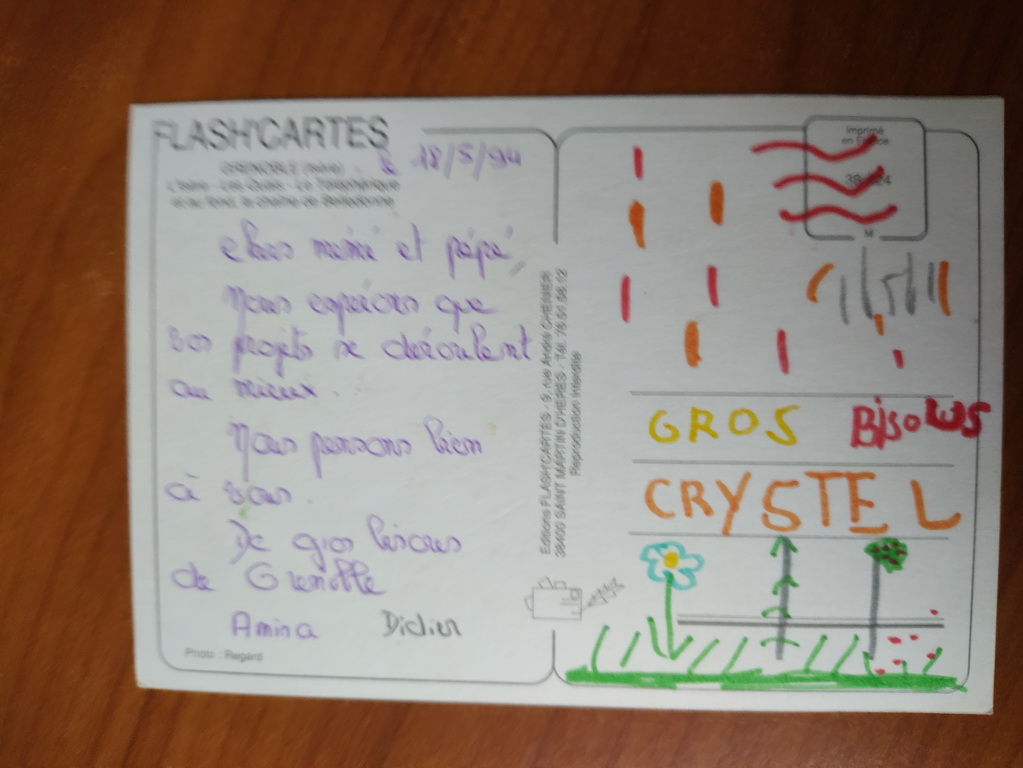 FLASH'CARTES
GRENOBLE (Isère)
L'Isère - Les Quais - Le Téléphérique
et au fond, la chaîne de Belledonne
le 18/5/94
chers mémé et pépé,
Nous espérons que
vos projets se déroulent
au mieux.
Nous pensons bien
à vous.
De gros bisous
de Grenoble
Amina Didier
Photo : Regard
Editions FLASH'CARTES - 9, rue André CHENIER
38400 SAINT MARTIN D'HERES - Tél. 76.51.56.12
Reproduction interdite
Imprimé
en France
M
GROS BisoUS
CRYSTEL